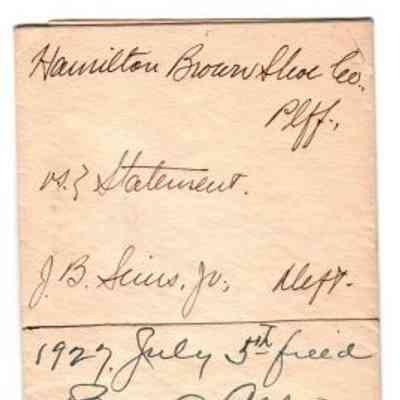 Hamilton Brown Shoe Co.
Plff.,
vs. } Statement.
J. B. Sims, Jr., Deft.
1927, July 5th filed